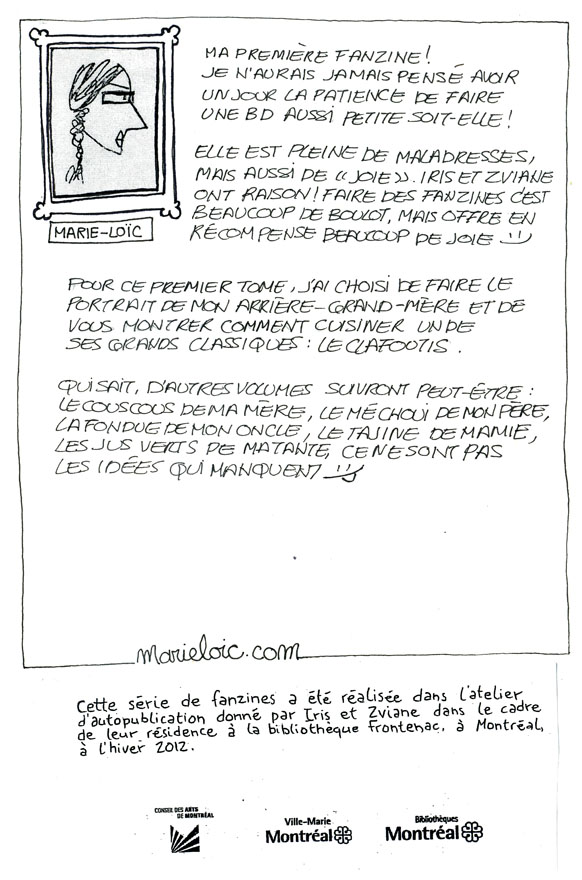 MA PREMIÈRE FANZINE!
JE N'AURAIS JAMAIS PENSÉ AVOIR
UN JOUR LA PATIENCE DE FAIRE
UNE BD AUSSI PETITE SOIT-ELLE!
ELLE EST PLEINE DE MALADRESSES,
MAIS AUSSI DE « JOIE ». IRIS ET ZVIANE
ONT RAISON! FAIRE DES FANZINES C'EST
BEAUCOUP DE BOULOT, MAIS OFFRE EN
RÉCOMPENSE BEAUCOUP DE JOIE
MARIE-LOÏC
POUR CE PREMIER TOME, J'AI CHOISI DE FAIRE LE
PORTRAIT DE MON ARRIÈRE-GRAND-MÈRE ET DE
VOUS MONTRER COMMENT CUISINER UN DE
SES GRANDS CLASSIQUES: LE CLAFOUTIS.
QUI SAIT, D'AUTRES VOLUMES SUIVRONT PEUT-ÊTRE:
LE COUSCOUS DE MA MÈRE, LE MÉCHOUI DE MON PÈRE,
LA FONDUE DE MON ONCLE, LE TAJINE DE MAMIE,
LES JUS VERTS DE MATANTE, CE NE SONT PAS
LES IDÉES QUI MANQUENT
marieloic.com
Cette série de fanzines a été réalisée dans l'atelier
d'autopublication donné par Iris et Zviane dans le cadre
de leur résidence à la bibliothèque Frontenac, à Montréal,
à l'hiver 2012.
CONSEIL DES ARTS
DE MONTRÉAL
Ville-Marie
Montréal
Bibliothèques
Montréal